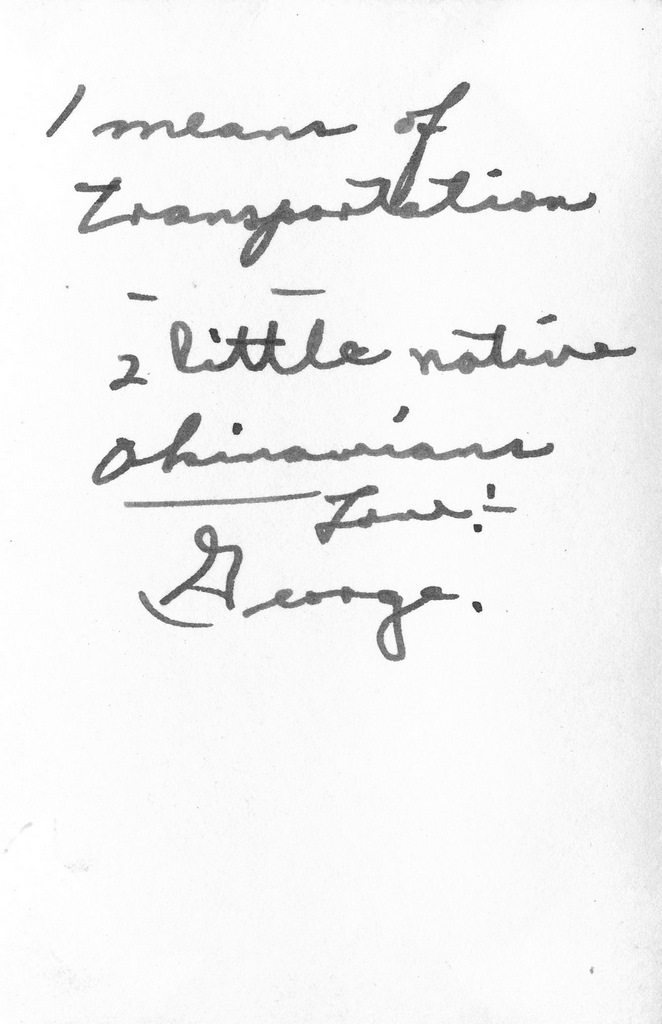 1 means of
transportation
2 little native
Okinawians
Love:-
George.